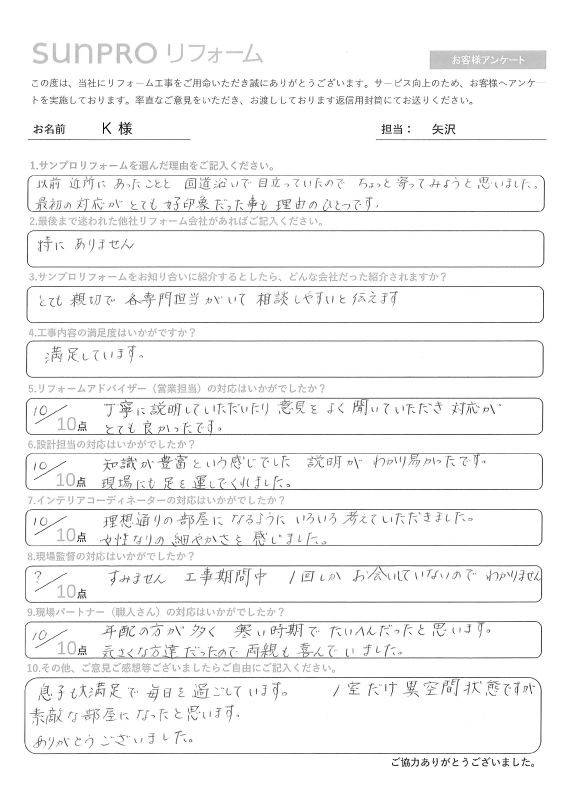 sunPRO リフォーム
お客様アンケート
この度は、当社にリフォーム工事をご用命いただき誠にありがとうございます。サービス向上のため、お客様へアンケー
トを実施しております。率直なご意見をいただき、お渡ししております返信用封筒にてお送りください。
お名前 K 様 担当： 矢沢
1.サンプロリフォームを選んだ理由をご記入ください。
以前 近所に あったことと 国道沿いで目立っていたので ちょっと寄ってみようと思いました。
最初の対応が とても 好印象だった事も 理由のひとつです.
2.最後まで迷われた他社リフォーム会社があればご記入ください。
特に ありません
3.サンプロリフォームをお知り合いに紹介するとしたら、どんな会社だった紹介されますか？
とても 親切で 各専門担当がいて 相談しやすいと 伝えます
4.工事内容の満足度はいかがですか？
満足しています。
5.リフォームアドバイザー（営業担当）の対応はいかがでしたか？
10/10点 丁寧に説明していただいたり 意見を よく 聞いていただき 対応が
とても 良かったです。
6.設計担当の対応はいかがでしたか？
10/10点 知識が豊富という感じでした 説明が わかり易かったです。
現場にも 足を運んでくれました。
7.インテリアコーディネーターの対応はいかがでしたか？
10/10点 理想通りの部屋に なるように いろいろ 考えていただきました。
女性なりの 細やかさを 感じました。
8.現場監督の対応はいかがでしたか？
?/10点 すみません 工事期間中 1回しか お会いしていないので わかりません
9.現場パートナー（職人さん）の対応はいかがでしたか？
10/10点 年配の方が 多く 寒い時期で たいへんだったと 思います。
元気な方達だったので 両親も 喜んで いました。
10.その他、ご意見ご感想等ございましたらご自由にご記入ください。
息子も大満足で 毎日を 過ごしています。 1室だけ 異空間状態ですが
素敵な部屋になったと思います。
ありがとうございました。
ご協力ありがとうございました。